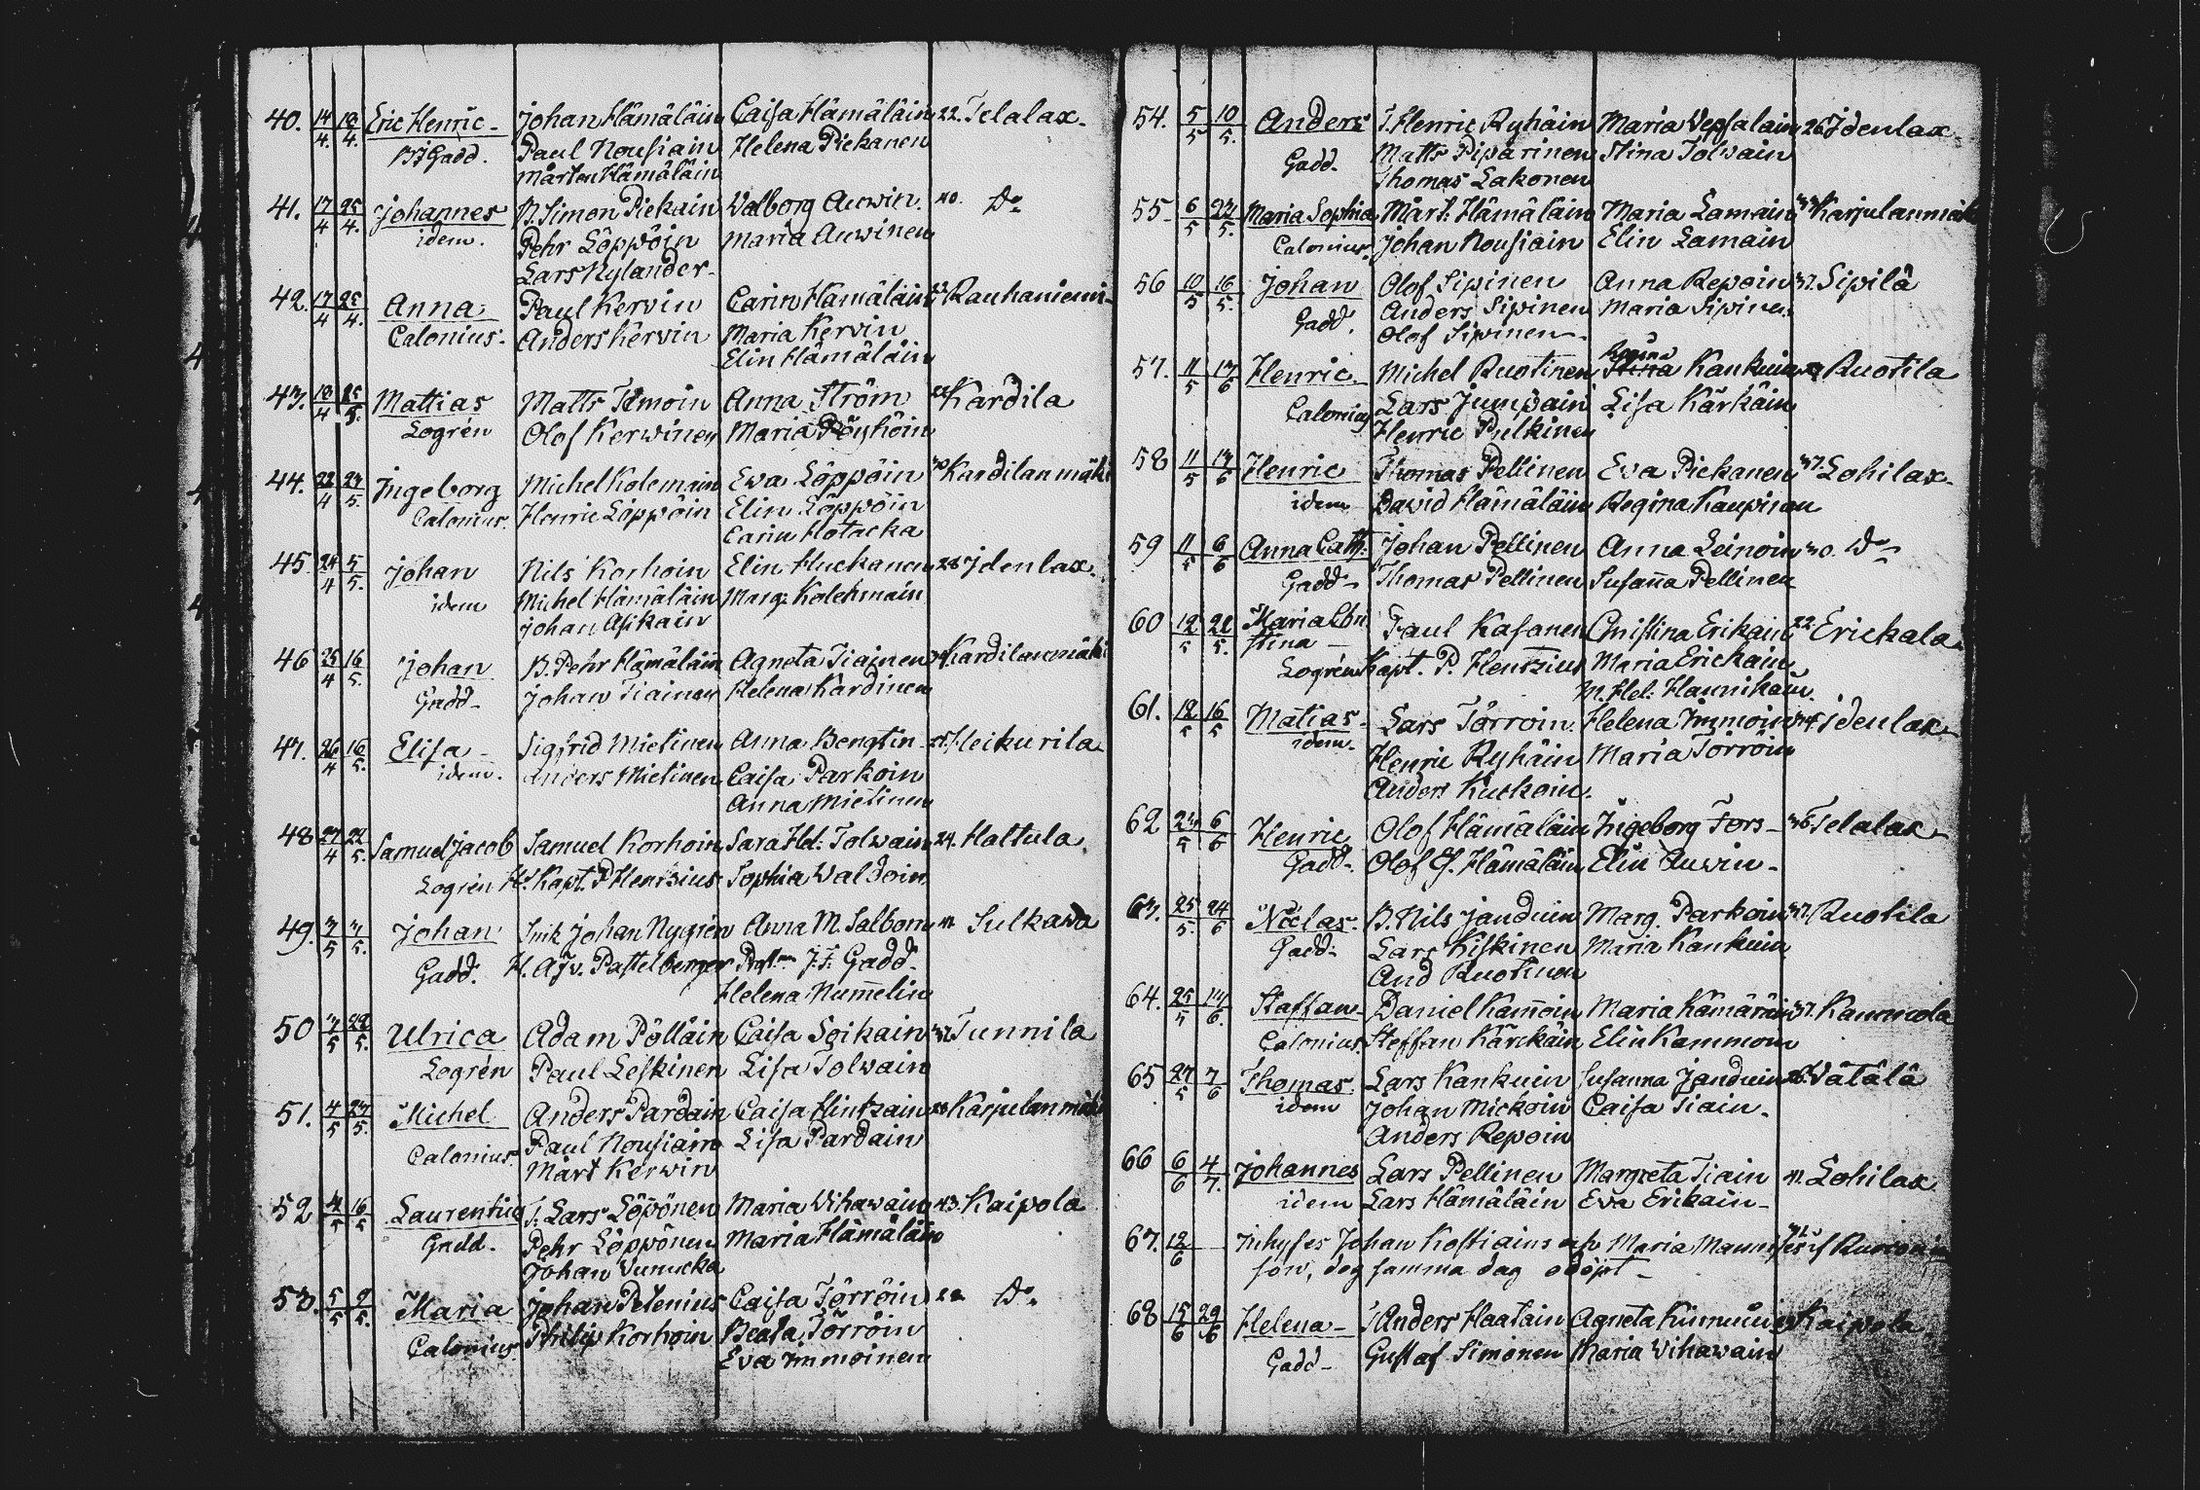 40. 14/4. 18/4. Eric Henric - Johan Hämäläin Caisa Hämäläin 22. Telalax.
Gadd. Paul Nousiain Helena Pickanen
Mårten Hämäläin
41. 17/4 25/4. Johannes B. Simon Pickain Walborg Auwin. 40. Do
idem. Pehr Löppöin Maria Auwinen
Lars Nylander
42. 17/4 25/4. Anna Paul Kervin Carin Hämäläin Rauhaniemi
Calonius. Anders Kervin Maria Kervin
Elin Hämäläin
43. 18/4 25/5. Mattias Matts Temoin Anna Ström Kardila
Logrén Olof Kerwinen Maria Pöyhöin
44. 22/4 24/5. Ingeborg Michel Kolemain Ewa Löppöin Kardilanmäki
Calonius. Henric Löppöin Elin Löppöin
Carin Hotacka
45. 24/4 5/5. Johan Nils Korhoin Elin Huckanen 28 Idenlax.
idem Michel Hämäläin Marg: Kolehmain
Johan Asikain
46 25/4 16/5. Johan B. Pehr Hämäläin Agneta Tiainen Kardilanmäki
Gadd - Johan Tiainen Helena Kardinen
47. 26/4 16/5. Elisa - Sigfrid Mietinen Anna Bengtin - Heikurila
idem. Anders Mietinen Caisa Parkoin
Anna Mietinen
48 27/4 22/5. Samuel Jacob Samuel Korhoin Sara Hel: Tolwain 24. Haltula
Logrén Hr Kapt. P Hentzius Sophia Waldoin
49. 3/5 3/5. Johan Johan Nygrén Anna M. Salbom Sulkawa
Gadd. H. Aj v. Pastelberger J. F. Gadd.
Helena Num̄elin
50 3/5 22/5. Ulrica Adam Pölläin Caisa Soikain Tunnila
Logrén Paul Leskinen Lisa Tolwain
51. 4/5 24/5. Michel Anders Pardain Caisa Hintzain Karjulanmäki
Calonius. Paul Nousiain Lisa Pardain
Mårt Kerwin
52 4/5 16/5 Laurentius T. Lars Löpönen Maria Wihawain 43. Kaipola
Gadd. Pehr Löppönen Maria Hämäläin
Johan Wunucka
53. 5/5 9/5. Maria Johan Petenius Caisa Törröin 22 Do
Calonius. Philip Korhoin Beata Törröin
Eva Immoinen
54. 5/5 10/5. Anders T. Henric Ryhäin Maria Wepsalain 26 Idenlax
Gadd. Matts Piparinen Stina Tolwain
Thomas Lakonen
55. 6/5 24/5. Maria Sophia Mårt: Hämäläin Maria Lamain Karjulanmäki
Calonius. Johan Nousiain Elin Lamain
56 10/5 16/5. Johan Olof Sipinen Anna Repoin 37. Sipilä
Gadd. Anders Sipinen Maria Sipinen
Olof Sipinen
57. 11/5 17/6 Henric. Michel Ruotinen Regina Kankuin Ruotila
Calonius Lars Jumpain Lisa Kärkäin
Henric Pulkinen
58 11/5 17/6 Henric Thomas Pellinen Eva Pickanen 37. Lohilax.
idem David Hämäläin Regina Kaupinen
59 11/5 6/6 Anna Cath: Johan Pellinen Anna Leinoin 30. Do
Gadd - Thomas Pellinen Susan̄a Pellinen
60 12/5 22/5. Maria Chri Paul Kasanen Christina Erikain 22. Erickala
stina -
Logrén Kapt. P. Hentzius Maria Erickain
M. Hel: Hannikain
61. 12/5 16/5 Matias - Lars Törroin. Helena Immoin Idenlax
idem. Henric Ryhäin Maria Törröin
Anders Kuckoin.
62 24/5 6/6 Henric Olof Hämäläin Ingeborg Fors - 36 Telalax
Gadd - Olof O. Hämäläin Elin Auwin -
63. 25/5. 24/6 Niclas. B. Nils Janduin Marg. Parkoin 37. Ruotila
Gadd. Lars Kiskinen Maria Kankuin
And Ruotinen
64. 25/5 17/6. Staffan Daniel Kam̄oin Maria Kämäräin 37. Kammola
Calonius. Steffan Kärckäin Elin Kammoin
65 27/5 7/6 Thomas Lars Kankuin Susanna Janduin Wätälä
idem Johan Mickoin Caisa Tiain -
Anders Repoin
66 6/6 4/7. Johannes Lars Pellinen Margreta Tiain 41. Lohilax
idem Lars Hämäläin Eva Erikain -
67. 12/6 Inhyses Johan Kostiains och Maria
son, dog samma dag odöpt -
68 15/6 29/6 Helena - Anders Haatain Agneta Kaipola
Gadd - Gustaf Simonen Maria Wihawain